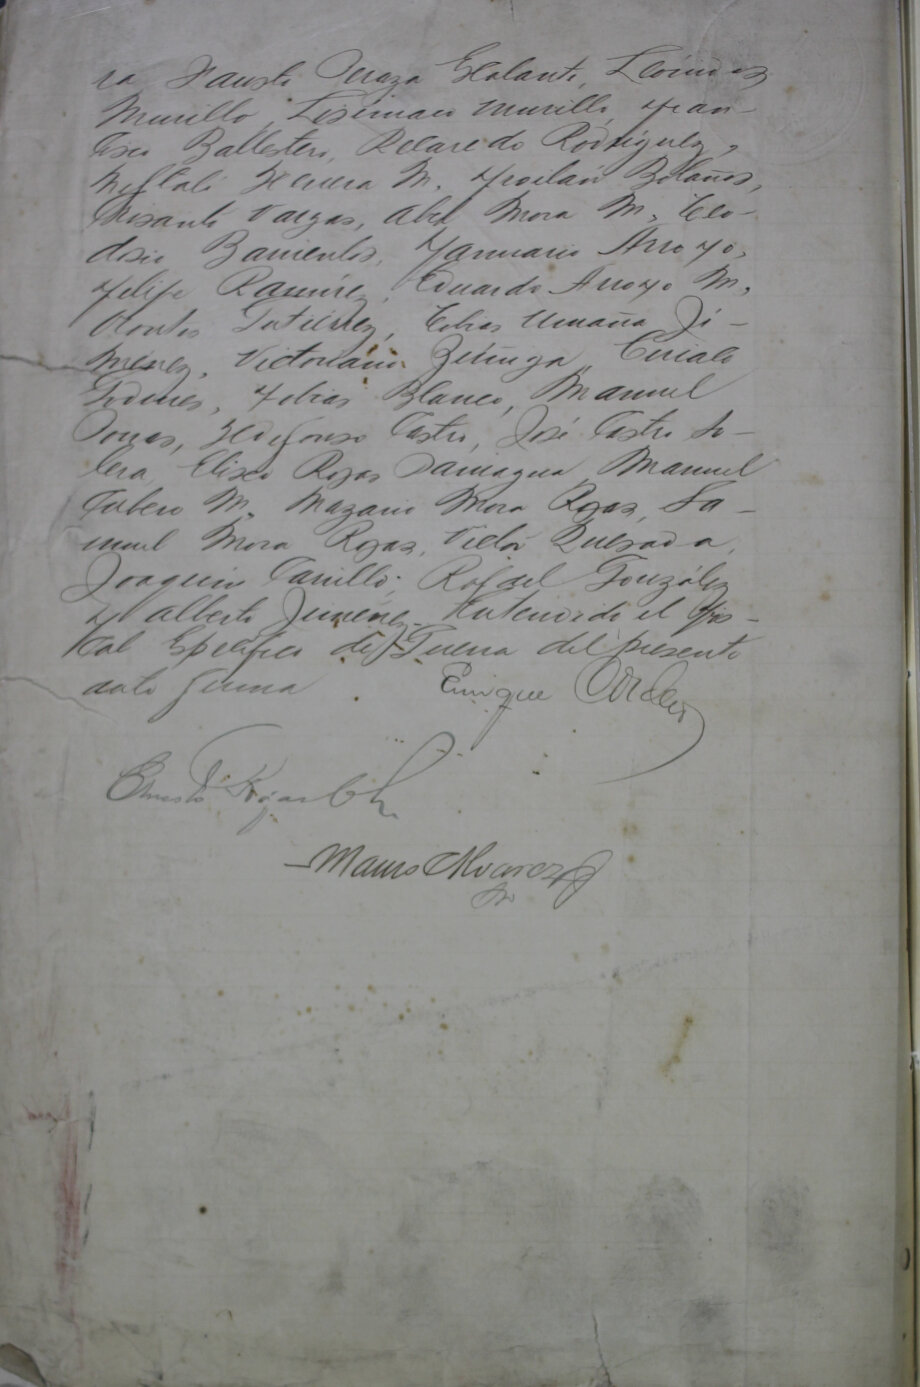 ra Fausto Peraza Escalante, Leonidas
Murillo, Lisímaco Murillo, Fran-
cisco Ballestero, Recaredo Rodríguez,
Neftalí Herrera M. Froilán Bolaños,
Crisanto Vargas, Abel Mora M, Teo-
dosio Barrientos, Januario Arroyo,
Felipe Ramírez, Eduardo Arroyo M,
Gutiérrez, Tobías Umaña Ji-
menez, Victoriano Zúñiga, Ciriaco
Godines, Tobías Blanco, Manuel
Porras, Ildefonso Castro, José Castro So-
lera, Eliseo Rojas Paniagua, Manuel
Cubero M. Nazario Mora Rojas, Sa-
muel Mora Rojas, Victor Quesada,
Joaquín Carrillo, Rafael González
y Alberto Jimenez. Enterado el Fis-
cal Específico de Guerra del presente
auto firma Enrique
Ernesto Rojas
Mauro Alvarez
Srio